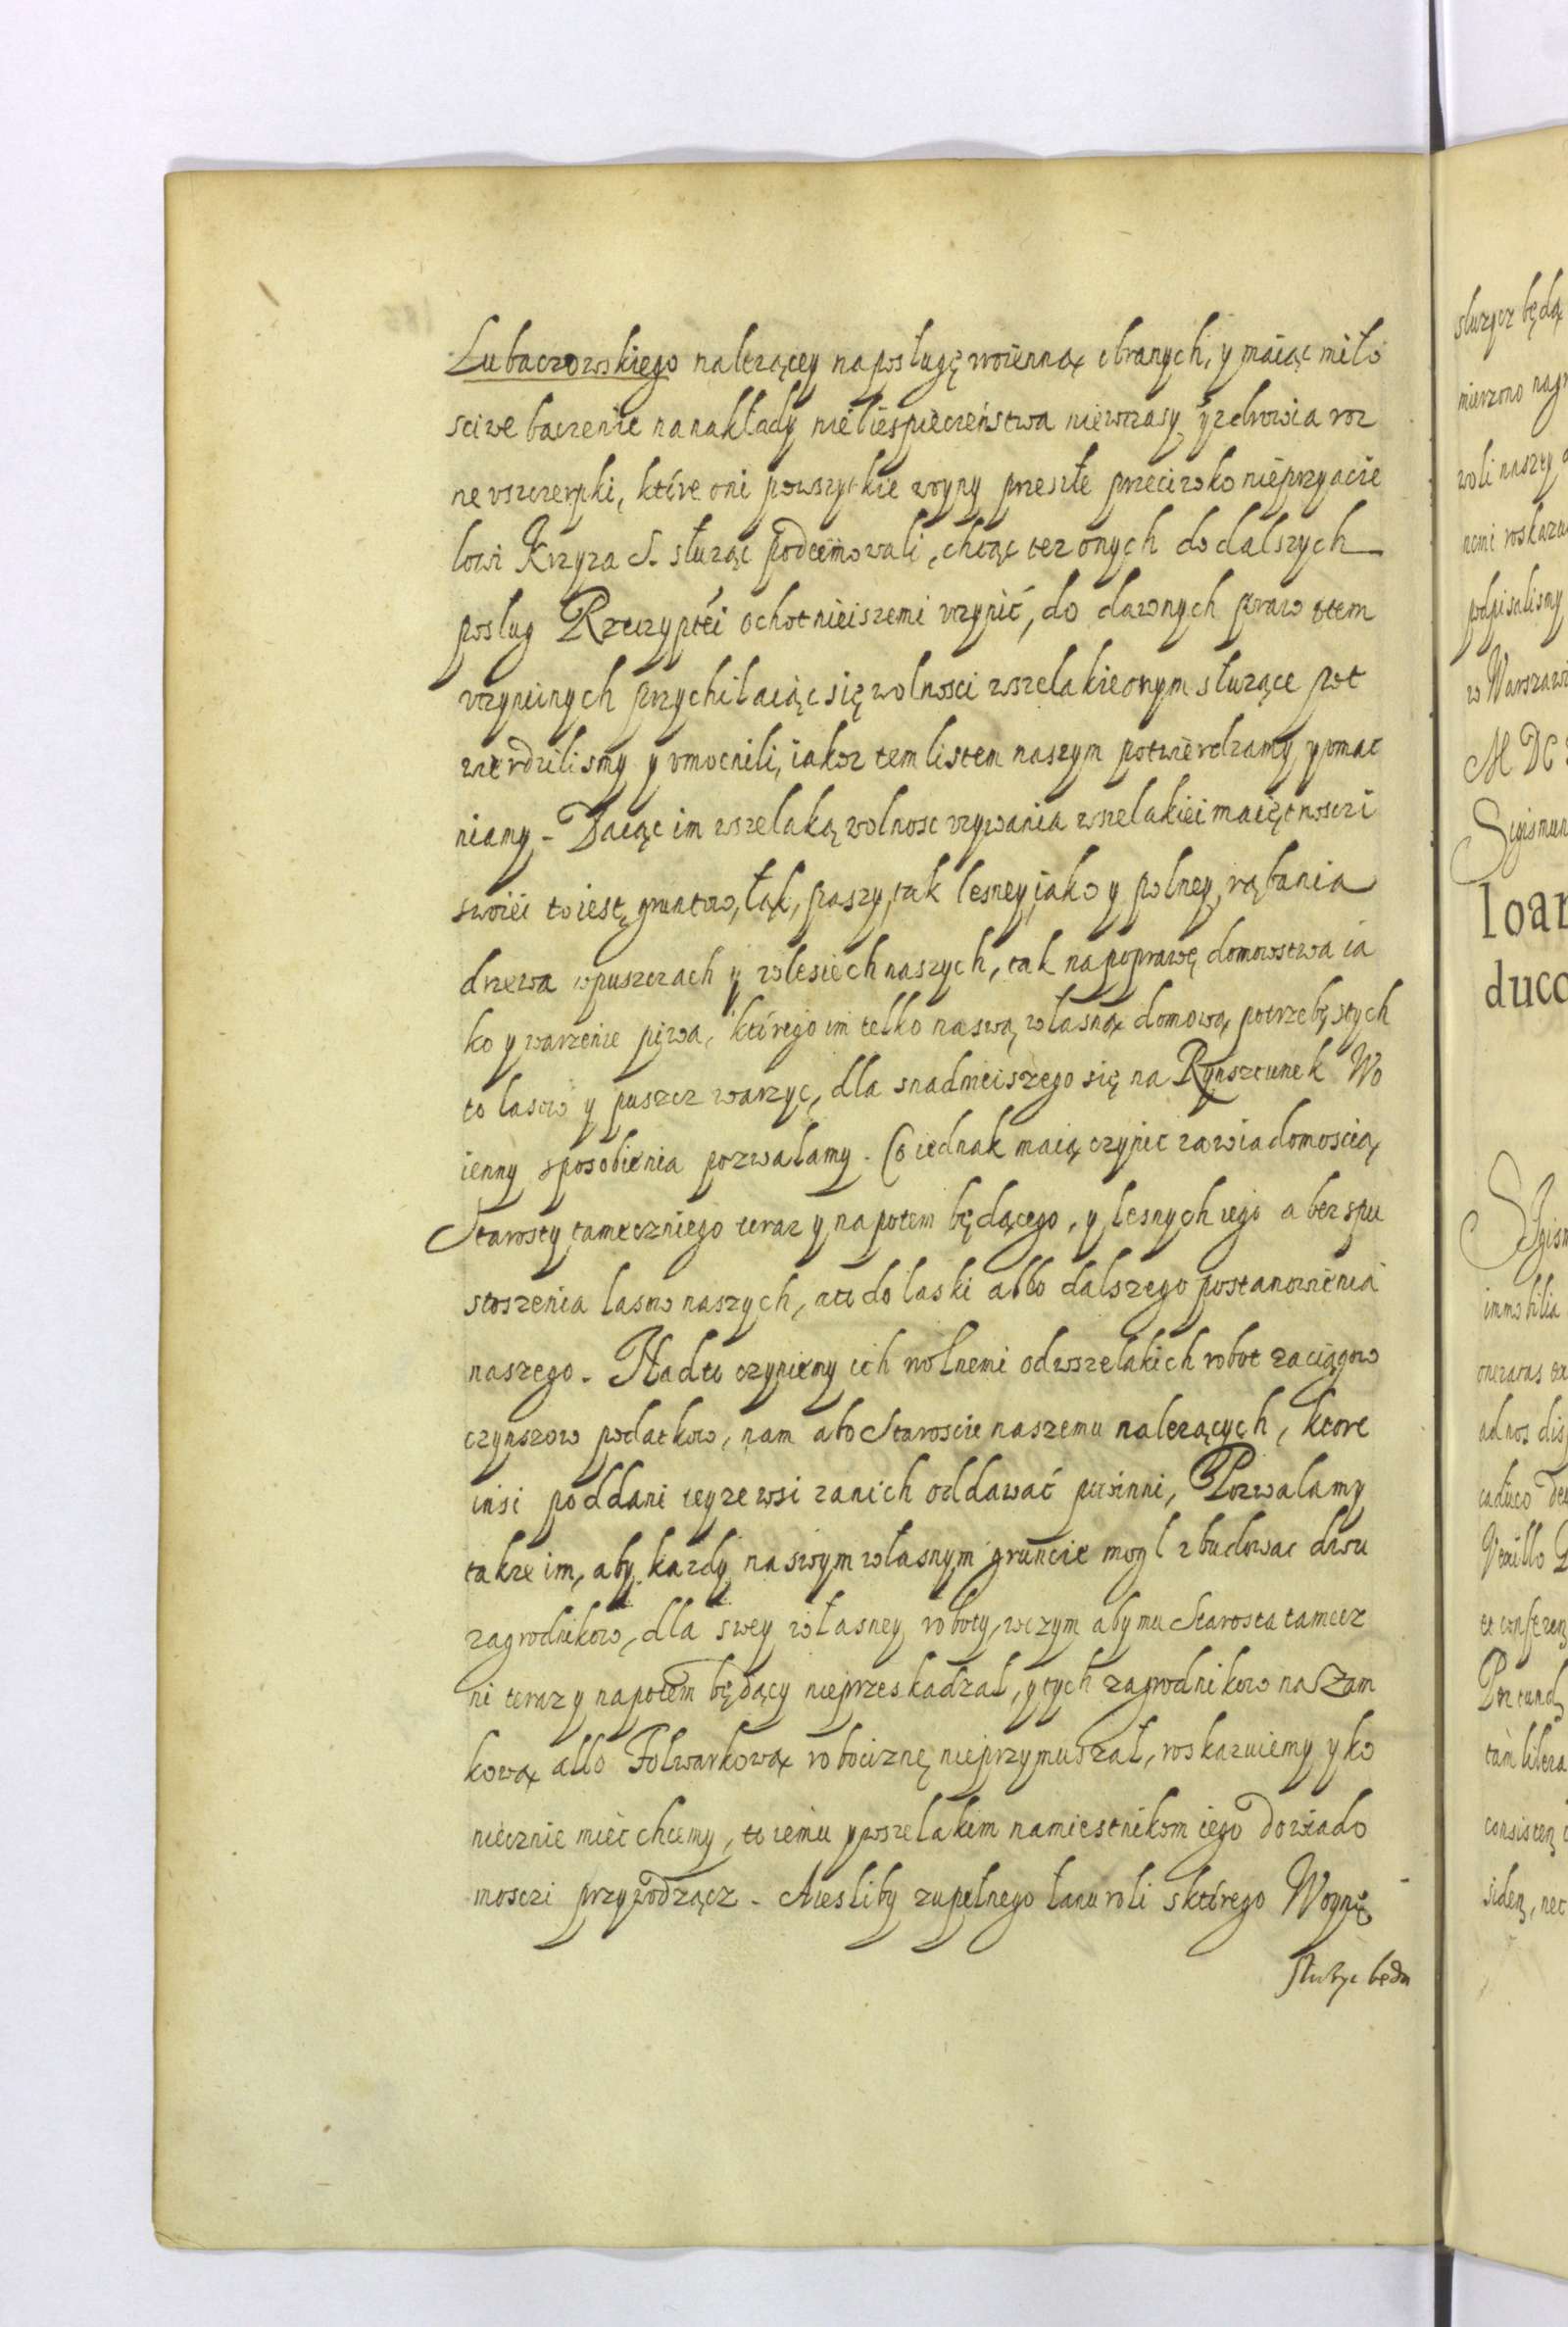 Lubaczowskiego nalezącey na posługę woienną obranych, y maiąc miło
sciwe baczenie na nakłady niebiespieczeństwa niewczasy y zdrowia roz
ne vszczerpki, które oni powszytkie woyny przeszłe przeciwko nieprzyacie
lowi Krzyza S. służąc podeimowali, chcąc tez onych do dalszych
posług Rzeczyptéi ochotnieiszemi vczynić, do dawnych praw otem
vczynionych przychilaiąc się wolnosci wszelakie onym służące pot
wierdzilismy y vmocnili, iakoz tem listem naszym potwierdzamy y vmac
niamy. Daiąc im wszelaką wolnosc vzywania wszelakiei maiętnosczi
swoiéi to iest, gruntow, łąk, paszy, tak lesney, iako y polney, rąbania
drzewa wpuszczach y wlesiech naszych, tak na poprawę domowstwa ia
ko y warzenie piwa, którego im telko naswą własną domową potrzebę stych
to lasow y puszcz warzyc, dla snadnieiszego się na Rynsztunek Wo
ienny sposobienia pozwalamy. Co iednak maią czynic zawiadomoscią
Starosty tameczniego teraz y napotem będącego, y lesnych iego a bez spu
stoszenia lasow naszych, a to do laski albo dalszego postanowienia
naszego. Nadto czyniemy ich wolnemi od wszelakich robot zaciągow
czynszow podatkow, nam abo Staroscie naszemu nalezących, które
insi poddani teyze wsi zanich oddawać powinni, Pozwalamy
takze im, aby kazdy naswym własnym gruncie mogl zbudowac dwu
zagrodnikow, dla swey własney roboty, wczym aby mu Starosta tamecz
ni teraz y napotem będący nieprzeskadzał, y tych zagrodnikow na Zam
kową albo Folwarkową robociznę nieprzymuszał, roskazuiemy y ko
niecznie mieć chcemy, to iemu y wszelakim namiestnikom iego do wiado
mosczi przywodzącz. A iesliby zupełnego łanu roli s którego Woynę
służyc będą
służycz będą
mierzono nagr
woli naszey
nemi roskaza
podpisalismy
w Warszawi
M DC
Sigismun
Ioan
ducc
Sigism
immobilia
oneratas
ad nos dis
caduco
Vexillo
et conferen
tàm libera
siden, nec